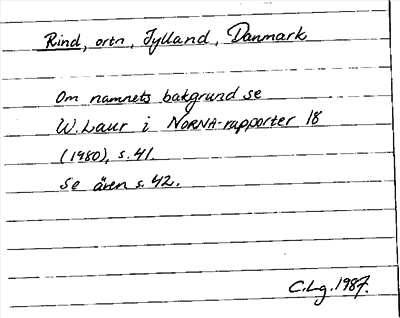 Rind, ortn, Jylland, Danmark
Om namnets bakgrund se
W. Laur i NORNA-rapporter 18
(1980), s. 41.
Se även s. 42.
C.Lg. 1987.